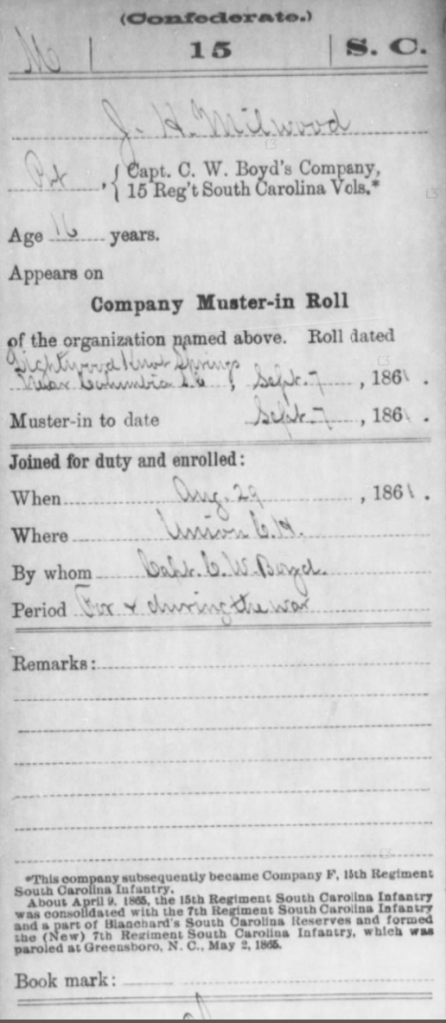 (Confederate.)
M | 15 | S. C.
J. H. Milwood
Pvt, { Capt. C. W. Boyd's Company,
15 Reg't South Carolina Vols.*
Age 16 years.
Appears on
Company Muster-in Roll
of the organization named above. Roll dated
Lightwood Knot Springs
Near Columbia S.C., Sept. 7, 1861.
Muster-in to date Sept. 7, 1861.
Joined for duty and enrolled:
When Aug. 29, 1861.
Where Union C. H.
By whom Capt. C. W. Boyd.
Period For & during the war
Remarks:
*This company subsequently became Company F, 15th Regiment
South Carolina Infantry.
About April 9, 1865, the 15th Regiment South Carolina Infantry
was consolidated with the 7th Regiment South Carolina Infantry
and a part of Blanchard's South Carolina Reserves and formed
the (New) 7th Regiment South Carolina Infantry, which was
paroled at Greensboro, N. C., May 2, 1865.
Book mark: